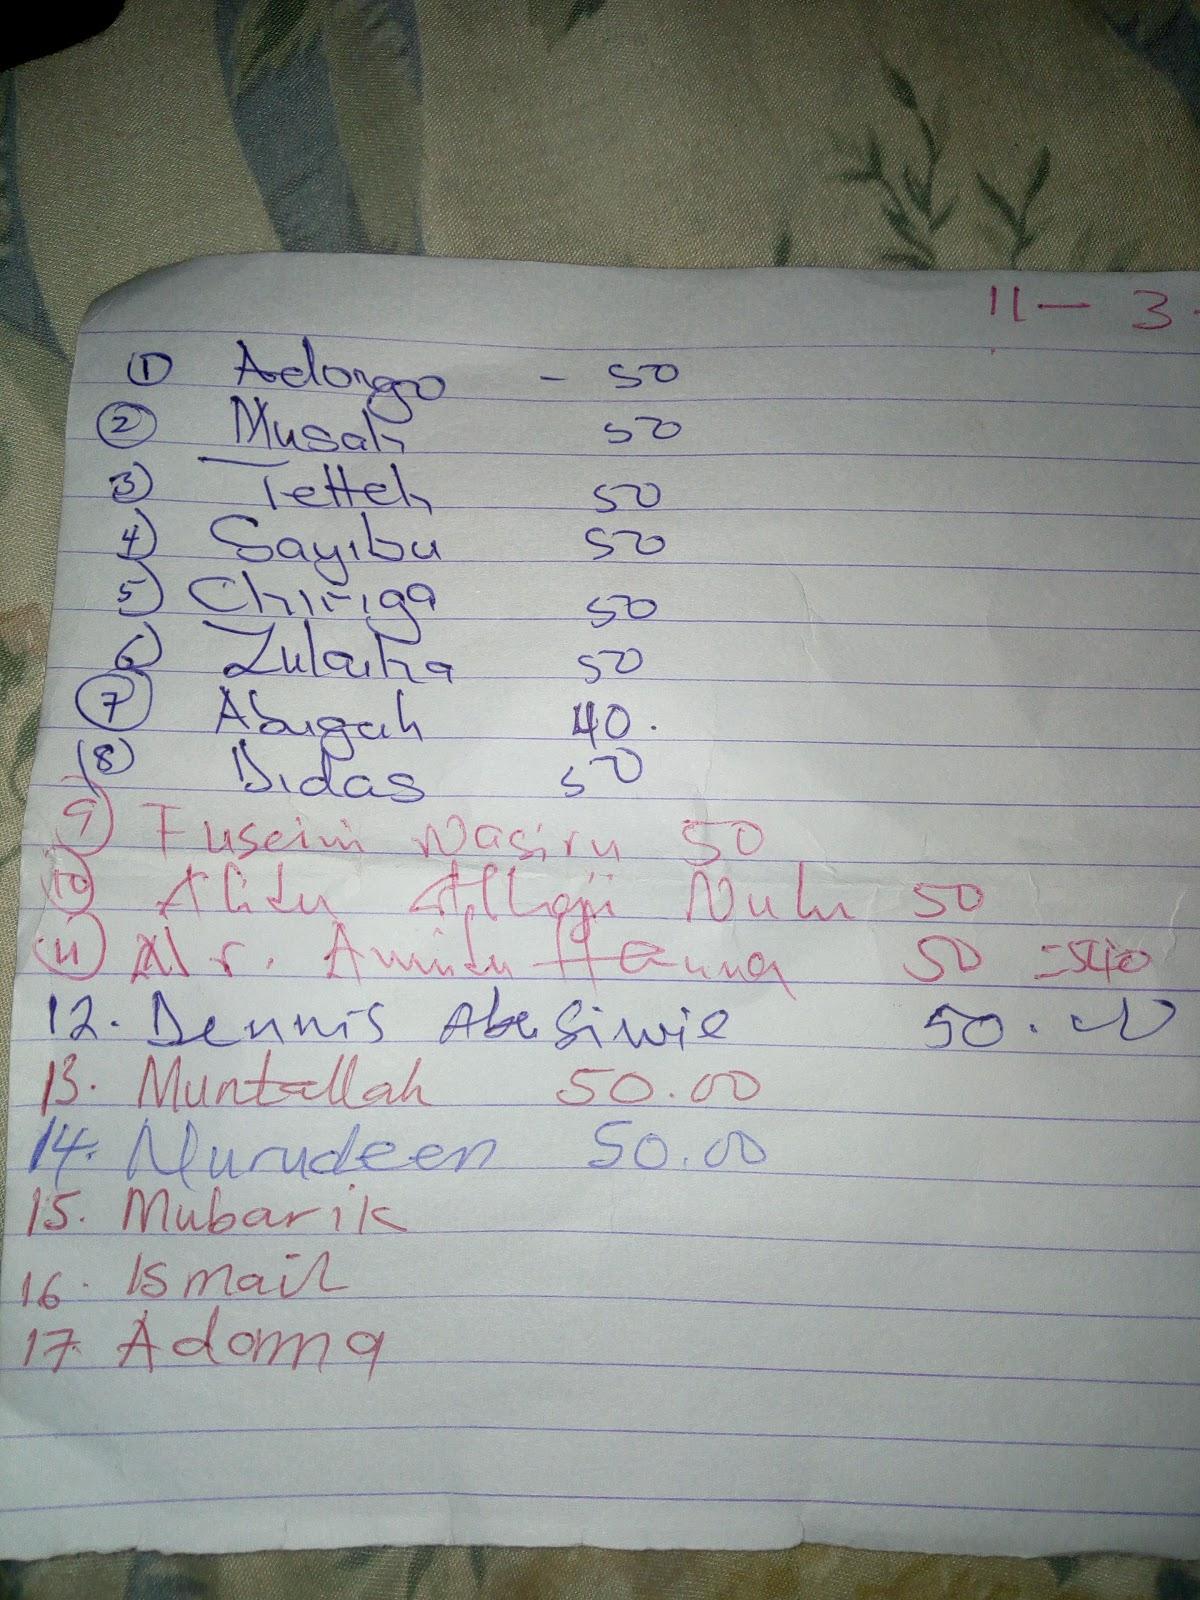 11 - 3 -
1) Adongo - 50
2 Musah 50
3) Tetteh 50
4) Sayibu 50
5) Chiriga 50
6) Zulaiha 50
7 Abugah 40.
(8) Didas 50
9) Fuseini Nasiru 50
10) Alidu Alhaji Nuhu 50
(11) Mr. Amidu Hanna 50 = 540
12. Dennis 50.00
13. Muntallah 50.00
14. Nurudeen 50.00
15. Mubarik
16. Ismail
17. Adama